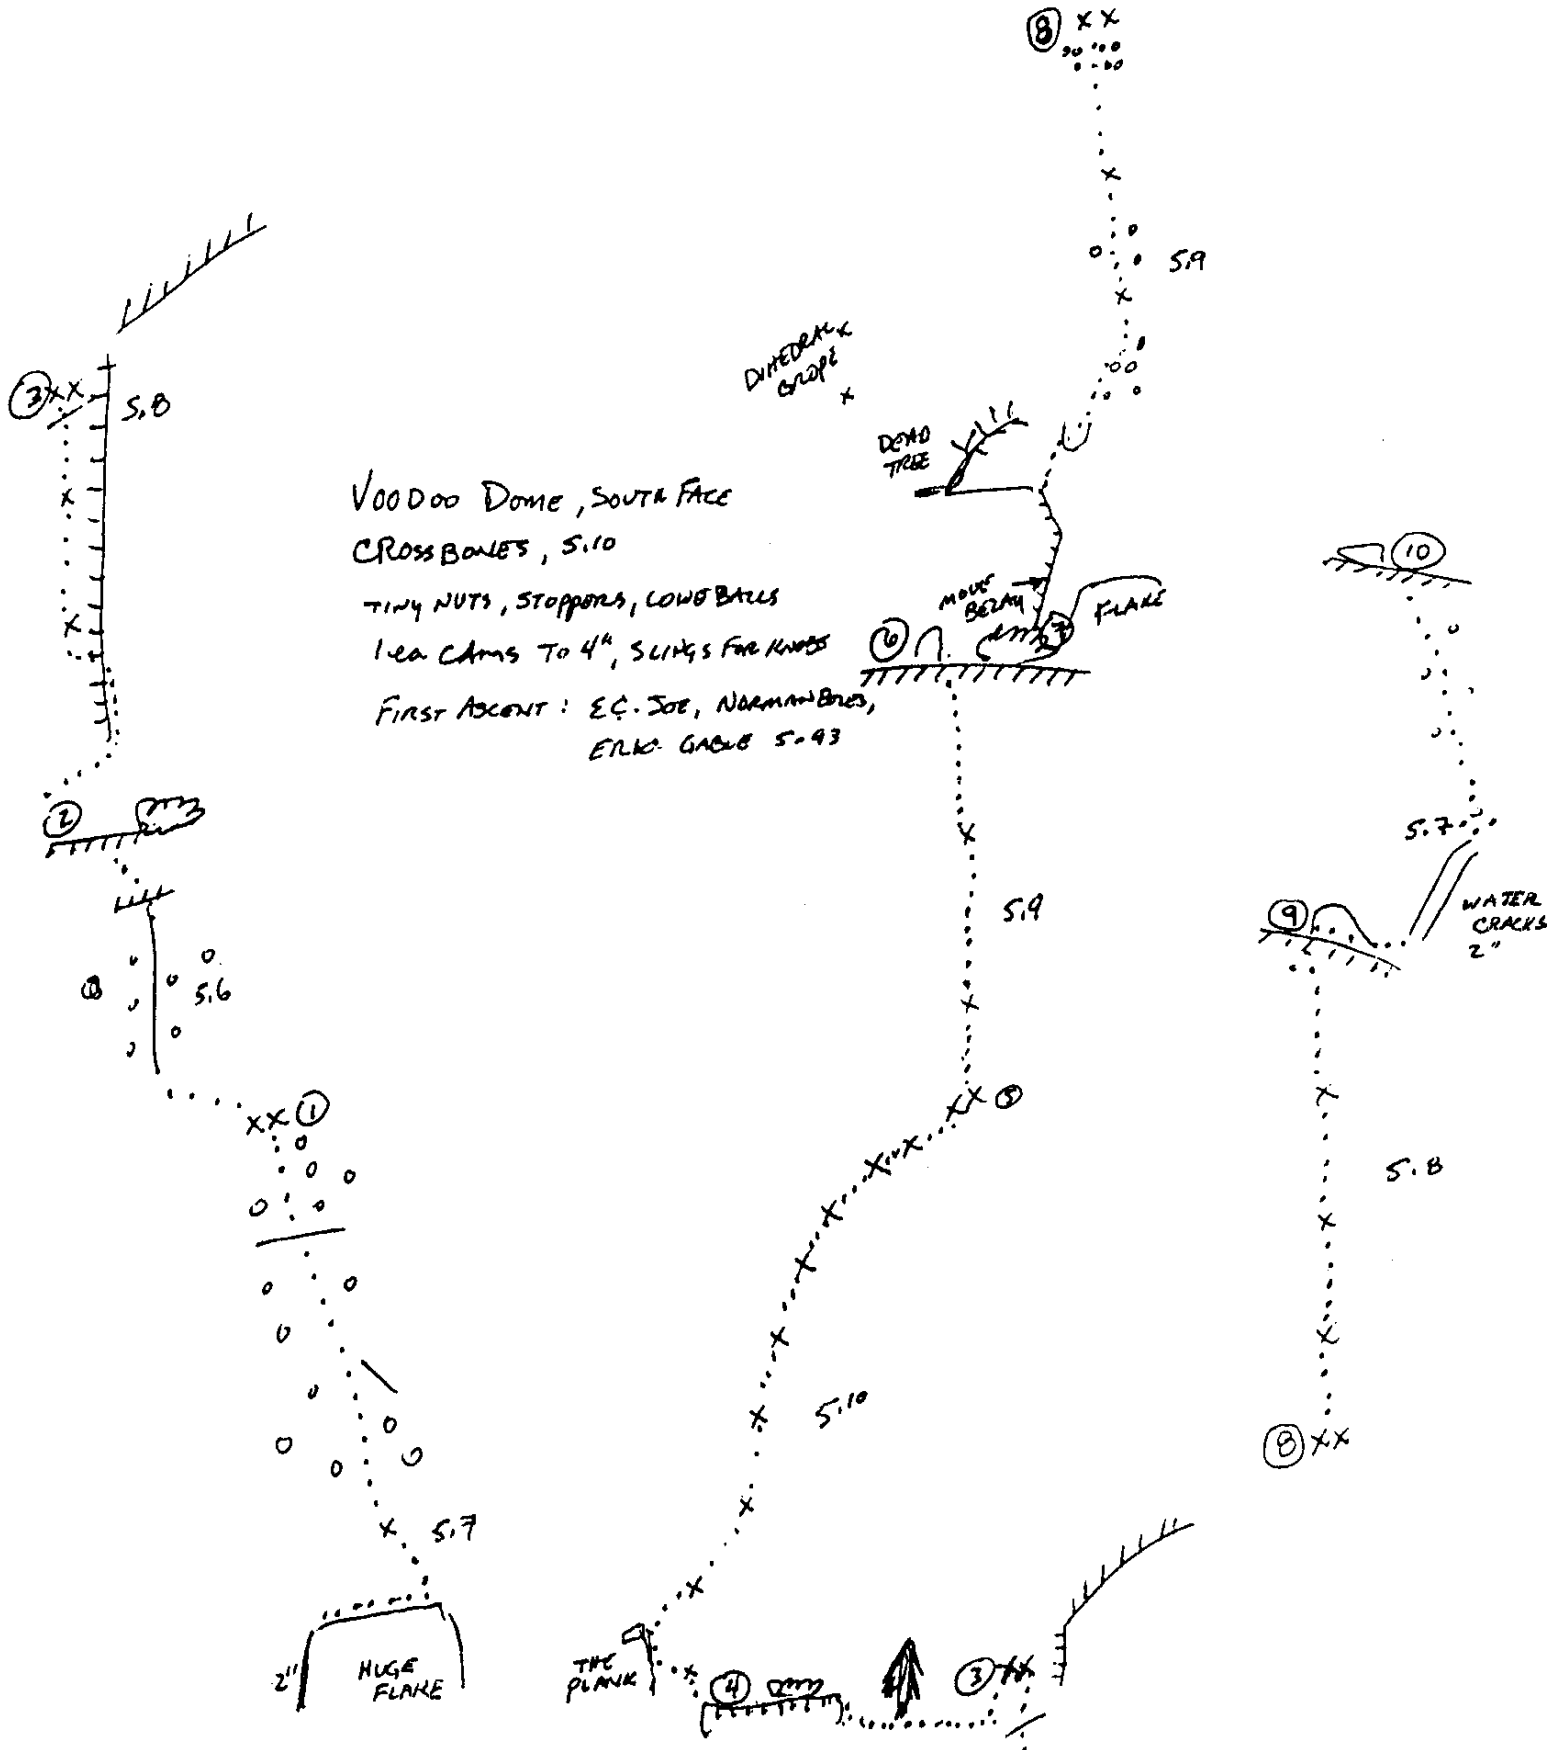 8 XX
5.9
DIHEDRAL
GROPE
3 XX
5.8
DEAD
TREE
VOODOO DOME, SOUTH FACE
CROSSBONES, 5.10
TINY NUTS, STOPPERS, LOWE BALLS
1ea CAMS TO 4", SLINGS FOR KNOBS
FIRST ASCENT: E.C. JOE, NORMAN BOLES,
ERIC GABLE 5.93
MOVE
BELAY
FLAKE
6
7
10
2
5.7
WATER
CRACKS
2"
9
5.9
5.6
XX 1
XX 5
5.8
5.10
8 XX
5.7
2"
HUGE
FLAKE
THE
PLANK
4
3 XX